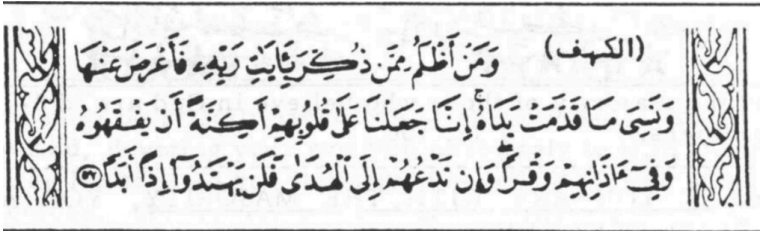 (الكهف) وَمَنْ أَظْلَمُ مِمَّن ذُكِّرَ بِـَٔايَـٰتِ رَبِّهِۦ فَأَعْرَضَ عَنْهَا
وَنَسِىَ مَا قَدَّمَتْ يَدَاهُ ۚ إِنَّا جَعَلْنَا عَلَىٰ قُلُوبِهِمْ أَكِنَّةً أَن يَفْقَهُوهُ
وَفِىٓ ءَاذَانِهِمْ وَقْرًا ۖ وَإِن تَدْعُهُمْ إِلَى ٱلْهُدَىٰ فَلَن يَهْتَدُوٓا۟ إِذًا أَبَدًا ٥٧